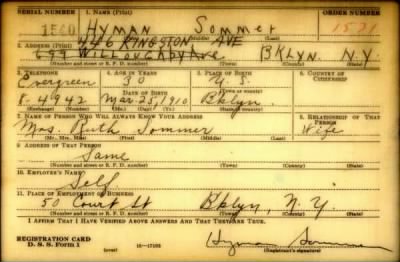 SERIAL NUMBER 1. NAME (Print) ORDER NUMBER
1560 HYMAN Sommer 1571
446 KINGSTON AVE
2. ADDRESS (Print)
659 WILLOUGHBY Ave. BKLYN. N.Y.
(Number and street or R. F. D. number) (Town) (County) (State)
3. TELEPHONE 4. AGE IN YEARS 5. PLACE OF BIRTH 6. COUNTRY OF CITIZENSHIP
Evergreen 30 U.S.
DATE OF BIRTH
8-4942 Mar. 25, 1910 Bklyn.
(Exchange) (Number) (Mo.) (Day) (Yr.) (State or country)
7. NAME OF PERSON WHO WILL ALWAYS KNOW YOUR ADDRESS 8. RELATIONSHIP OF THAT PERSON
Mrs. Ruth Sommer Wife
(Mr., Mrs., Miss) (First) (Middle) (Last)
9. ADDRESS OF THAT PERSON
Same
(Number and street or R. F. D. number) (Town) (County) (State)
10. EMPLOYER'S NAME
Self
11. PLACE OF EMPLOYMENT OR BUSINESS
50 Court St Bklyn, N.Y.
(Number and street or R. F. D. number) (Town) (County) (State)
I AFFIRM THAT I HAVE VERIFIED ABOVE ANSWERS AND THAT THEY ARE TRUE.
REGISTRATION CARD
D. S. S. Form 1 (over) 16—17105 Hyman Sommer
(Registrant's signature)